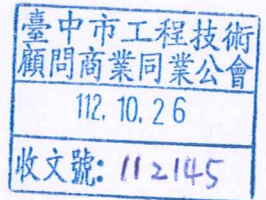 臺中市工程技術
顧問商業同業公會
112.10.26
收文號: 112145